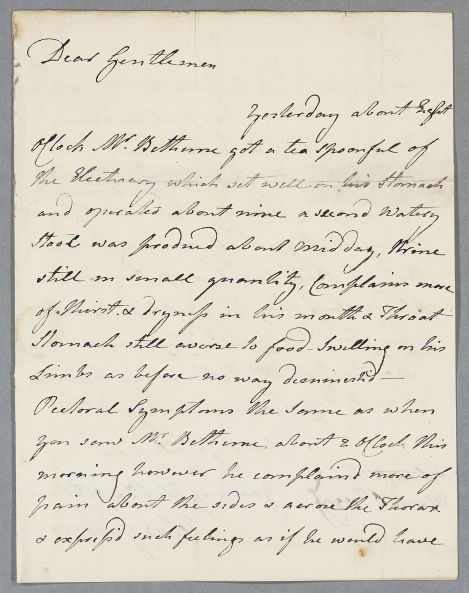 Dear Gentlemen
Yesterday about Eight
OClock Mr. Bethune got a teaspoonful of
the Electuary which set well on his Stomach
and operated about nine a second Watery
Stool was produced about midday, Urine
still in small quantity, Complains more
of thirst & dryness in his mouth & Throat
Stomach still averse to food Swelling on his
Limbs as before no way diminish'd —
Pectoral Symptoms the same as when
you saw Mr. Bethune, about 2 OClock this
morning however he complaind more of
pain about the sides & across the Thorax
& express'd such feelings as if he would have